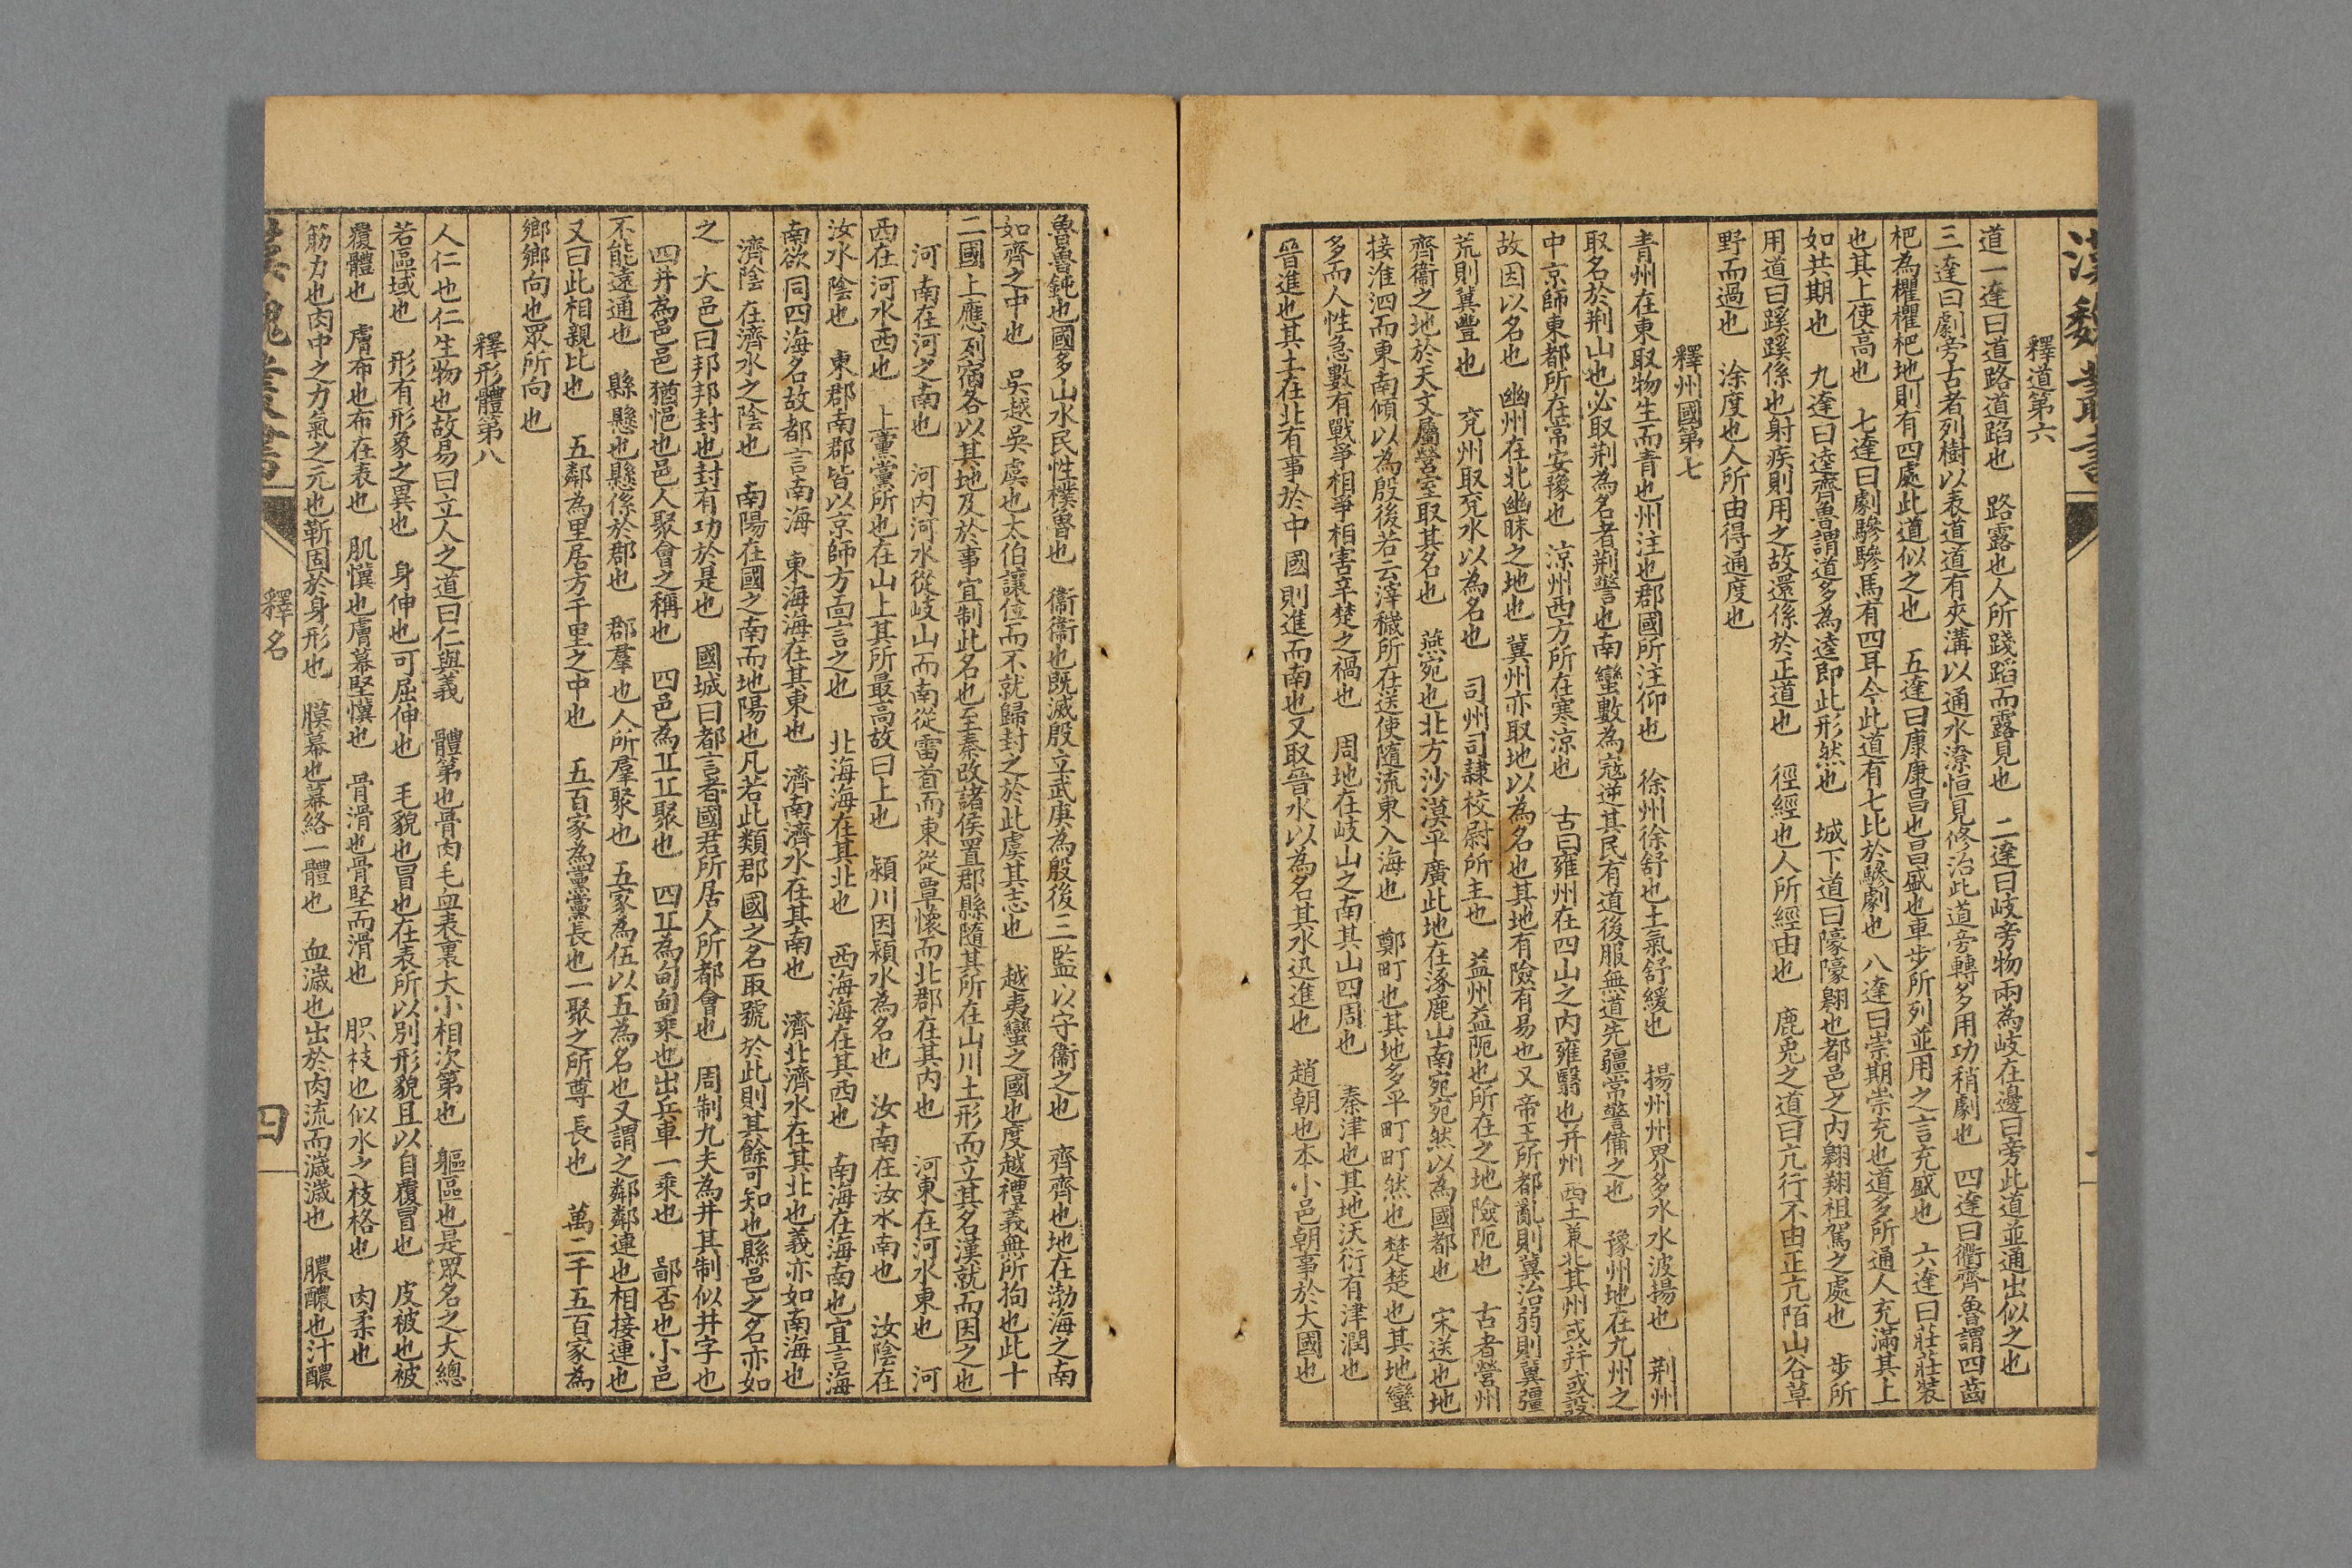 漢魏叢書
釋道第六
道一達曰道路道蹈也　路露也人所踐蹈而露見也　二達曰岐旁物兩為岐在邊曰旁此道並通出似之也
三達曰劇旁古者列樹以表道道有夾溝以通水潦恒見修治此道旁轉多用功稍劇也　四達曰衢齊魯謂四齒
杷為欋欋杷地則有四處此道似之也　五達曰康康昌也昌盛也車步所列並用之言充盛也　六達曰莊莊裝
也其上使高也　七達曰劇驂驂馬有四耳今此道有七比於驂劇也　八達曰崇期崇充也道多所通人充滿其上
如共期也　九達曰逵齊魯謂道多為逵即此形然也　城下道曰㙱㙱翱也都邑之内翱翔祖駕之處也　步所
用道曰蹊蹊係也射疾則用之故還係於正道也　徑經也人所經由也　鹿兎之道曰亢行不由正亢陌山谷草
野而過也　涂度也人所由得通度也
釋州國第七
青州在東取物生而青也州注也郡國所注仰也　徐州徐舒也土氣舒緩也　揚州州界多水水波揚也　荆州
取名於荆山也必取荆為名者荆警也南蠻數為寇逆其民有道後服無道先疆常警備之也　豫州地在九州之
中京師東都所在常安豫也　涼州西方所在寒涼也　古曰雍州在四山之内雍翳也并州西土兼北其州或幷或設
故因以名也　幽州在北幽昧之地也　冀州亦取地以為名也其地有險有易也又帝王所都亂則冀治弱則冀彊
荒則冀豐也　兖州取兖水以為名也　司州司隸校尉所主也　益州益阨也所在之地險阨也　古者營州
齊衞之地於天文屬營室取其名也　燕宛也北方沙漠平廣此地在涿鹿山南宛宛然以為國都也　宋送也地
接淮泗而東南傾以為殷後若云滓穢所在送使隨流東入海也　鄭町也其地多平町町然也楚楚也其地蠻
多而人性急數有戰爭相爭相害辛楚之禍也　周地在岐山之南其山四周也　秦津也其地沃衍有津潤也
晉進也其土在北有事於中國則進而南也又取晉水以為名其水迅進也　趙朝也本小邑朝事於大國也
魯魯鈍也國多山水民性樸魯也　衞衞也既滅殷立武庚為殷後三監以守衞之也　齊齊也地在渤海之南
如齊之中也　吳越吳虞也太伯讓位而不就歸封之於此虞其志也　越夷蠻之國也度越禮義無所拘也此十
二國上應列宿各以其地及於事宜制此名也至秦改諸侯置郡縣隨其所在山川土形而立其名漢就而因之也
河南在河之南也　河内河水從岐山而南從雷首而東從覃懷而北郡在其内也　河東在河水東也　河
西在河水西也　上黨黨所也在山上其所最高故曰上也　潁川因潁水為名也　汝南在汝水南也　汝陰在
汝水陰也　東郡南郡皆以京師方面言之也　北海海在其北也　西海海在其西也　南海在海南也宜言海
南欲同四海名故都言南海　東海海在其東也　濟南濟水在其南也　濟北濟水在其北也義亦如南海也
濟陰在濟水之陰也　南陽在國之南而地陽也凡若此類郡國之名取號於此則其餘可知也縣邑之名亦如
之　大邑曰邦邦封也封有功於是也　國城曰都言者國君所居人所都會也　周制九夫為井其制似井字也
四井為邑邑猶悒也邑人聚會之稱也　四邑為丠丠聚也　四丠為甸甸乘也出兵車一乘也　鄙否也小邑
不能遠通也　縣懸也懸係於郡也　郡羣也人所羣聚也　五家為伍以五為名也又謂之鄰鄰連也相接連也
又曰此相親比也　五鄰為里居方千里之中也　五百家為黨黨長也一聚之所尊長也　萬二千五百家為
鄉鄉向也眾所向也
釋形體第八
人仁也仁生物也故易曰立人之道曰仁與義　體第也骨肉毛血表裏大小相次第也　軀區也是眾名之大總
若區域也　形有形象之異也　身伸也可屈伸也　毛貌也冒也在表所以別形貌且以自覆冒也　皮被也被
覆體也　膚布也布在表也　肌懻也膚幕堅懻也　骨滑也骨堅而滑也　胑枝也似水之枝格也　肉柔也
筋力也肉中之力氣之元也靳固於身形也　膜幕也幕絡一體也　血濊也出於肉流而濊濊也　膿醲也汁醲
漢魏叢書
釋名
四